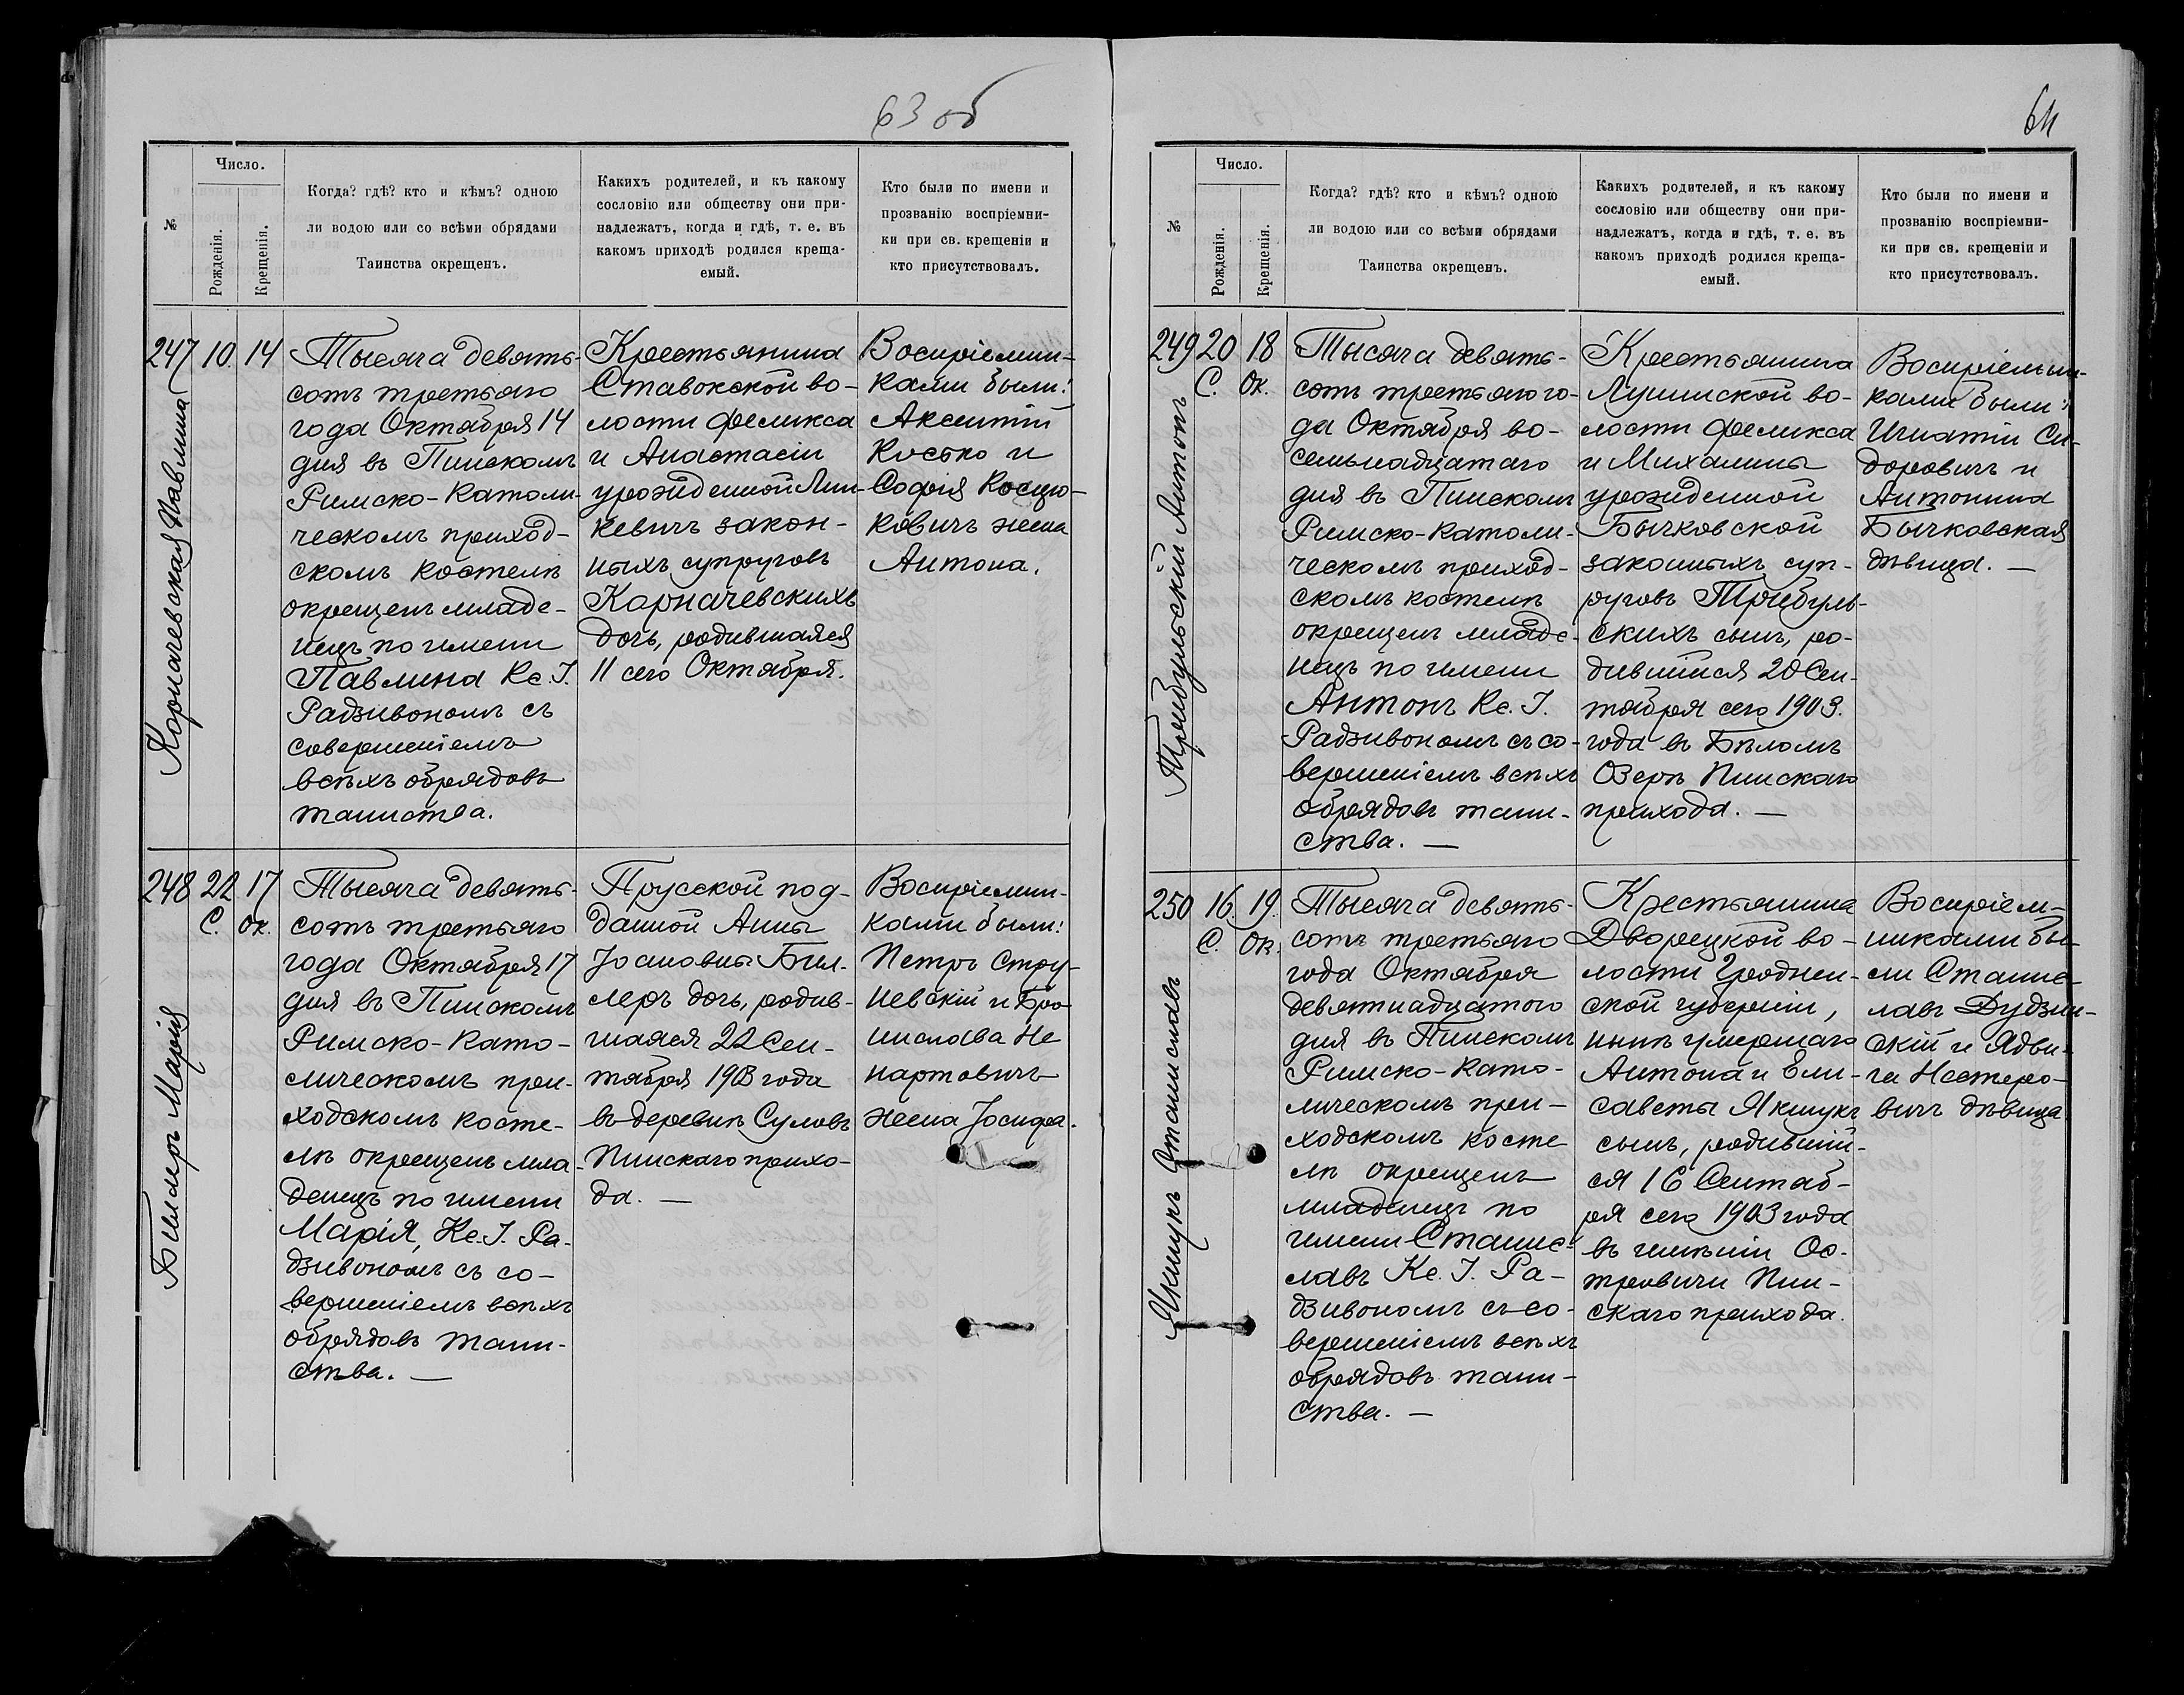 63 об
№
Число.
Рожденія.
Крещенія.
Когда? гдѣ? кто и кѣмъ? одною
ли водою или со всѣми обрядами
Таинства окрещенъ.
Какихъ родителей, и къ какому
сословію или обществу они при-
надлежатъ, когда и гдѣ, т. е. въ
какомъ приходѣ родился креща-
емый.
Кто были по имени и
прозванію воспріемни-
ки при св. крещеніи и
кто присутствовалъ.
247
Корначевская Павлина
10.
14
Тысяча девять-
сотъ третьяго
года Октября 14
дня въ Пинскомъ
Римско-Католи-
ческомъ приход-
скомъ костелѣ
окрещенъ младе-
нецъ по имени
Павлина Кс. І.
Радзивономъ съ
совершеніемъ
всѣхъ обрядовъ
таинства.
Крестьянина
Ставокской во-
лости Феликса
и Анастасіи
урожденной Лин-
кевичъ закон-
ныхъ супруговъ
Корначевскихъ
дочь, родившаяся
11 сего Октября.
Воспріемни-
ками были:
Аксентій
Костко и
Софія Косцю-
ковичъ жена
Антона.
248
Билеръ Марія
22
С.
17
Ок.
Тысяча девять-
сотъ третьяго
года Октября 17
дня въ Пинскомъ
Римско-Като-
лическомъ при-
ходскомъ косте-
лѣ окрещенъ мла-
денецъ по имени
Марія, Кс. І. Ра-
дзивономъ съ со-
вершеніемъ всѣхъ
обрядовъ таин-
ства. —
Прусской под-
данной Анны
Іоановны Бил-
леръ дочь, родив-
шаяся 22 Сен-
тября 1903 года
въ деревнѣ Суловъ
Пинскаго прихо-
да. —
Воспріемни-
ками были:
Петръ Стру-
невскій и Бро
нислава Не
нартовичъ
жена Іосифа.
64
№
Число.
Рожденія.
Крещенія.
Когда? гдѣ? кто и кѣмъ? одною
ли водою или со всѣми обрядами
Таинства окрещенъ.
Какихъ родителей, и къ какому
сословію или обществу они при-
надлежатъ, когда и гдѣ, т. е. въ
какомъ приходѣ родился креща-
емый.
Кто были по имени и
прозванію воспріемни-
ки при св. крещеніи и
кто присутствовалъ.
249
Трибульскій Антонъ
20
С.
18
Ок.
Тысяча девять-
сотъ третьяго го-
да Октября во-
семьнадцатаго
дня въ Пинскомъ
Римско-Католи-
ческомъ приход-
скомъ костелѣ
окрещенъ младе-
нецъ по имени
Антонъ Кс. І.
Радзивономъ съ со-
вершеніемъ всѣхъ
обрядовъ таин-
ства. —
Крестьянина
Лунинской во-
лости Феликса
и Михалины
урожденной
Бычковской
законныхъ суп-
руговъ Трибуль-
скихъ сынъ, ро-
дившійся 20 Сен-
тября сего 1903.
года въ Бѣломъ
Озерѣ Пинскаго
прихода. —
Воспріемни-
ками были:
Игнатій Си-
доровичъ и
Антонина
Бычковская
дѣвица. —
250
Якшукъ Станиславъ
16.
С.
19.
Ок.
Тысяча девять-
сотъ третьяго
года Октября
девятнадцатого
дня въ Пинскомъ
Римско-Като-
лическомъ при-
ходскомъ косте
лѣ окрещенъ
младенецъ по
имени Станис-
лавъ Кс. І. Ра-
дзивономъ съ со-
вершеніемъ всѣхъ
обрядовъ таин-
ства. —
Крестьянина
Дворецкой во-
лости Гроднен-
ской губерніи,
нынѣ умершаго
Антона и Ели-
саветы Якшукъ
сынъ, родившій-
ся 16 Сентяб-
ря сего 1903 года
въ имѣніи Ос-
тровичи Пин-
скаго прихода.
Воспріем-
никами бы-
ли Станис-
лавъ Дудзин-
скій и Ядви-
га Нестеро-
вичъ дѣвица